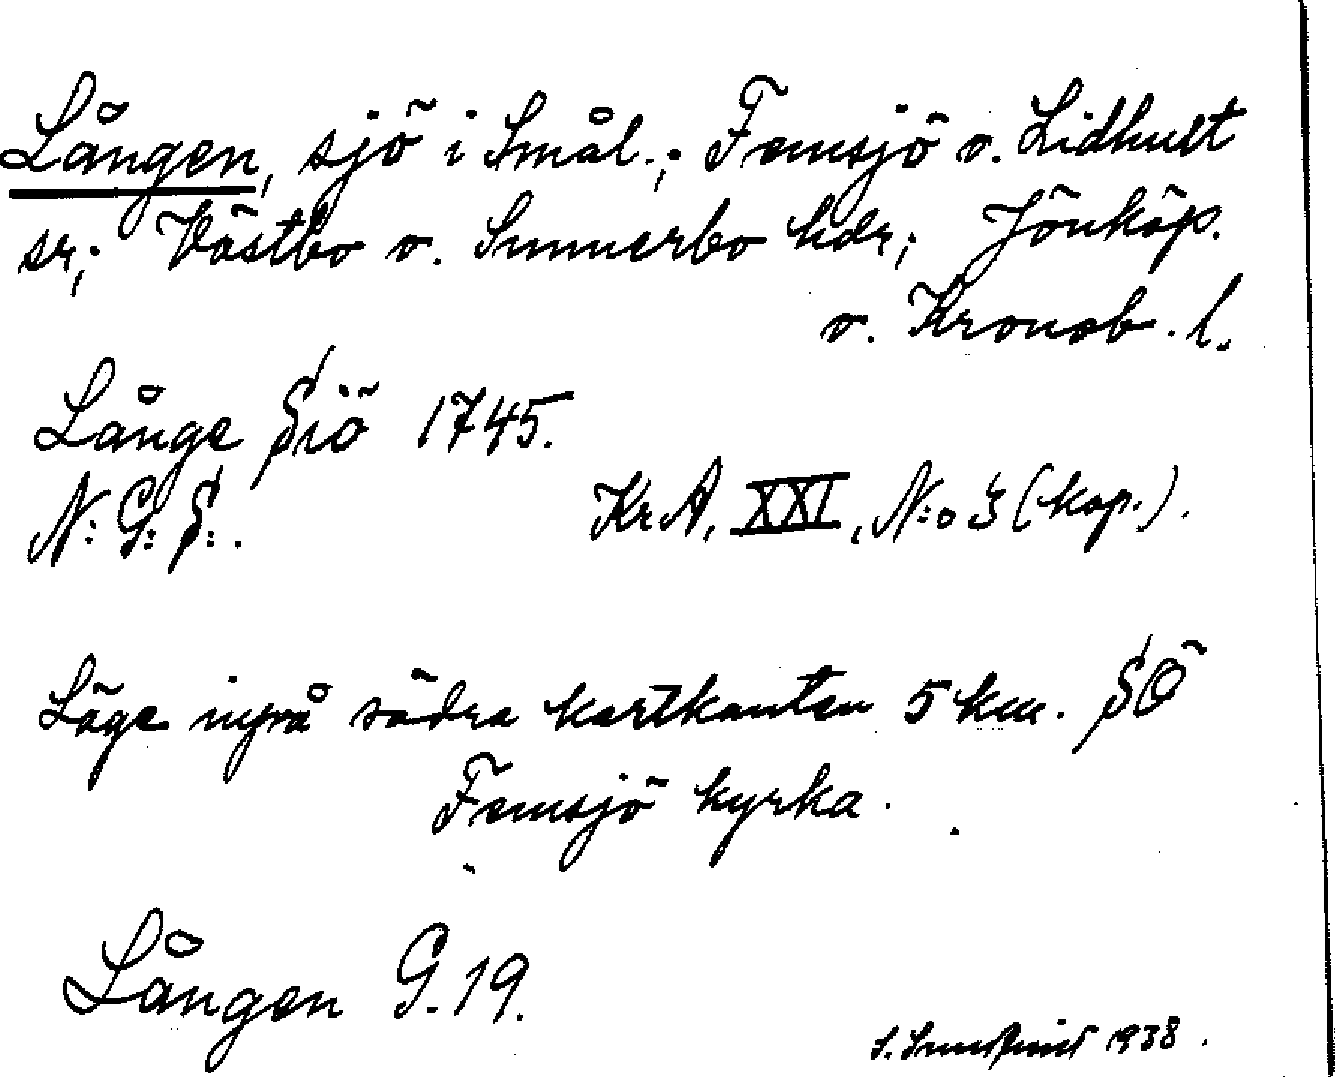 Lången, sjö i Smål.; Femsjö o. Lidhult
sr; Västbo o. Sunnerbo hdr; Jönköp.
o. Kronob. l.
Långe Siö 1745.
N: G: S:.
Kr A, XXI, N:o 3 (kop.).
Läge invid södra kartkanten 5 km. SÖ
Femsjö kyrka.
Lången G. 19.
1938.